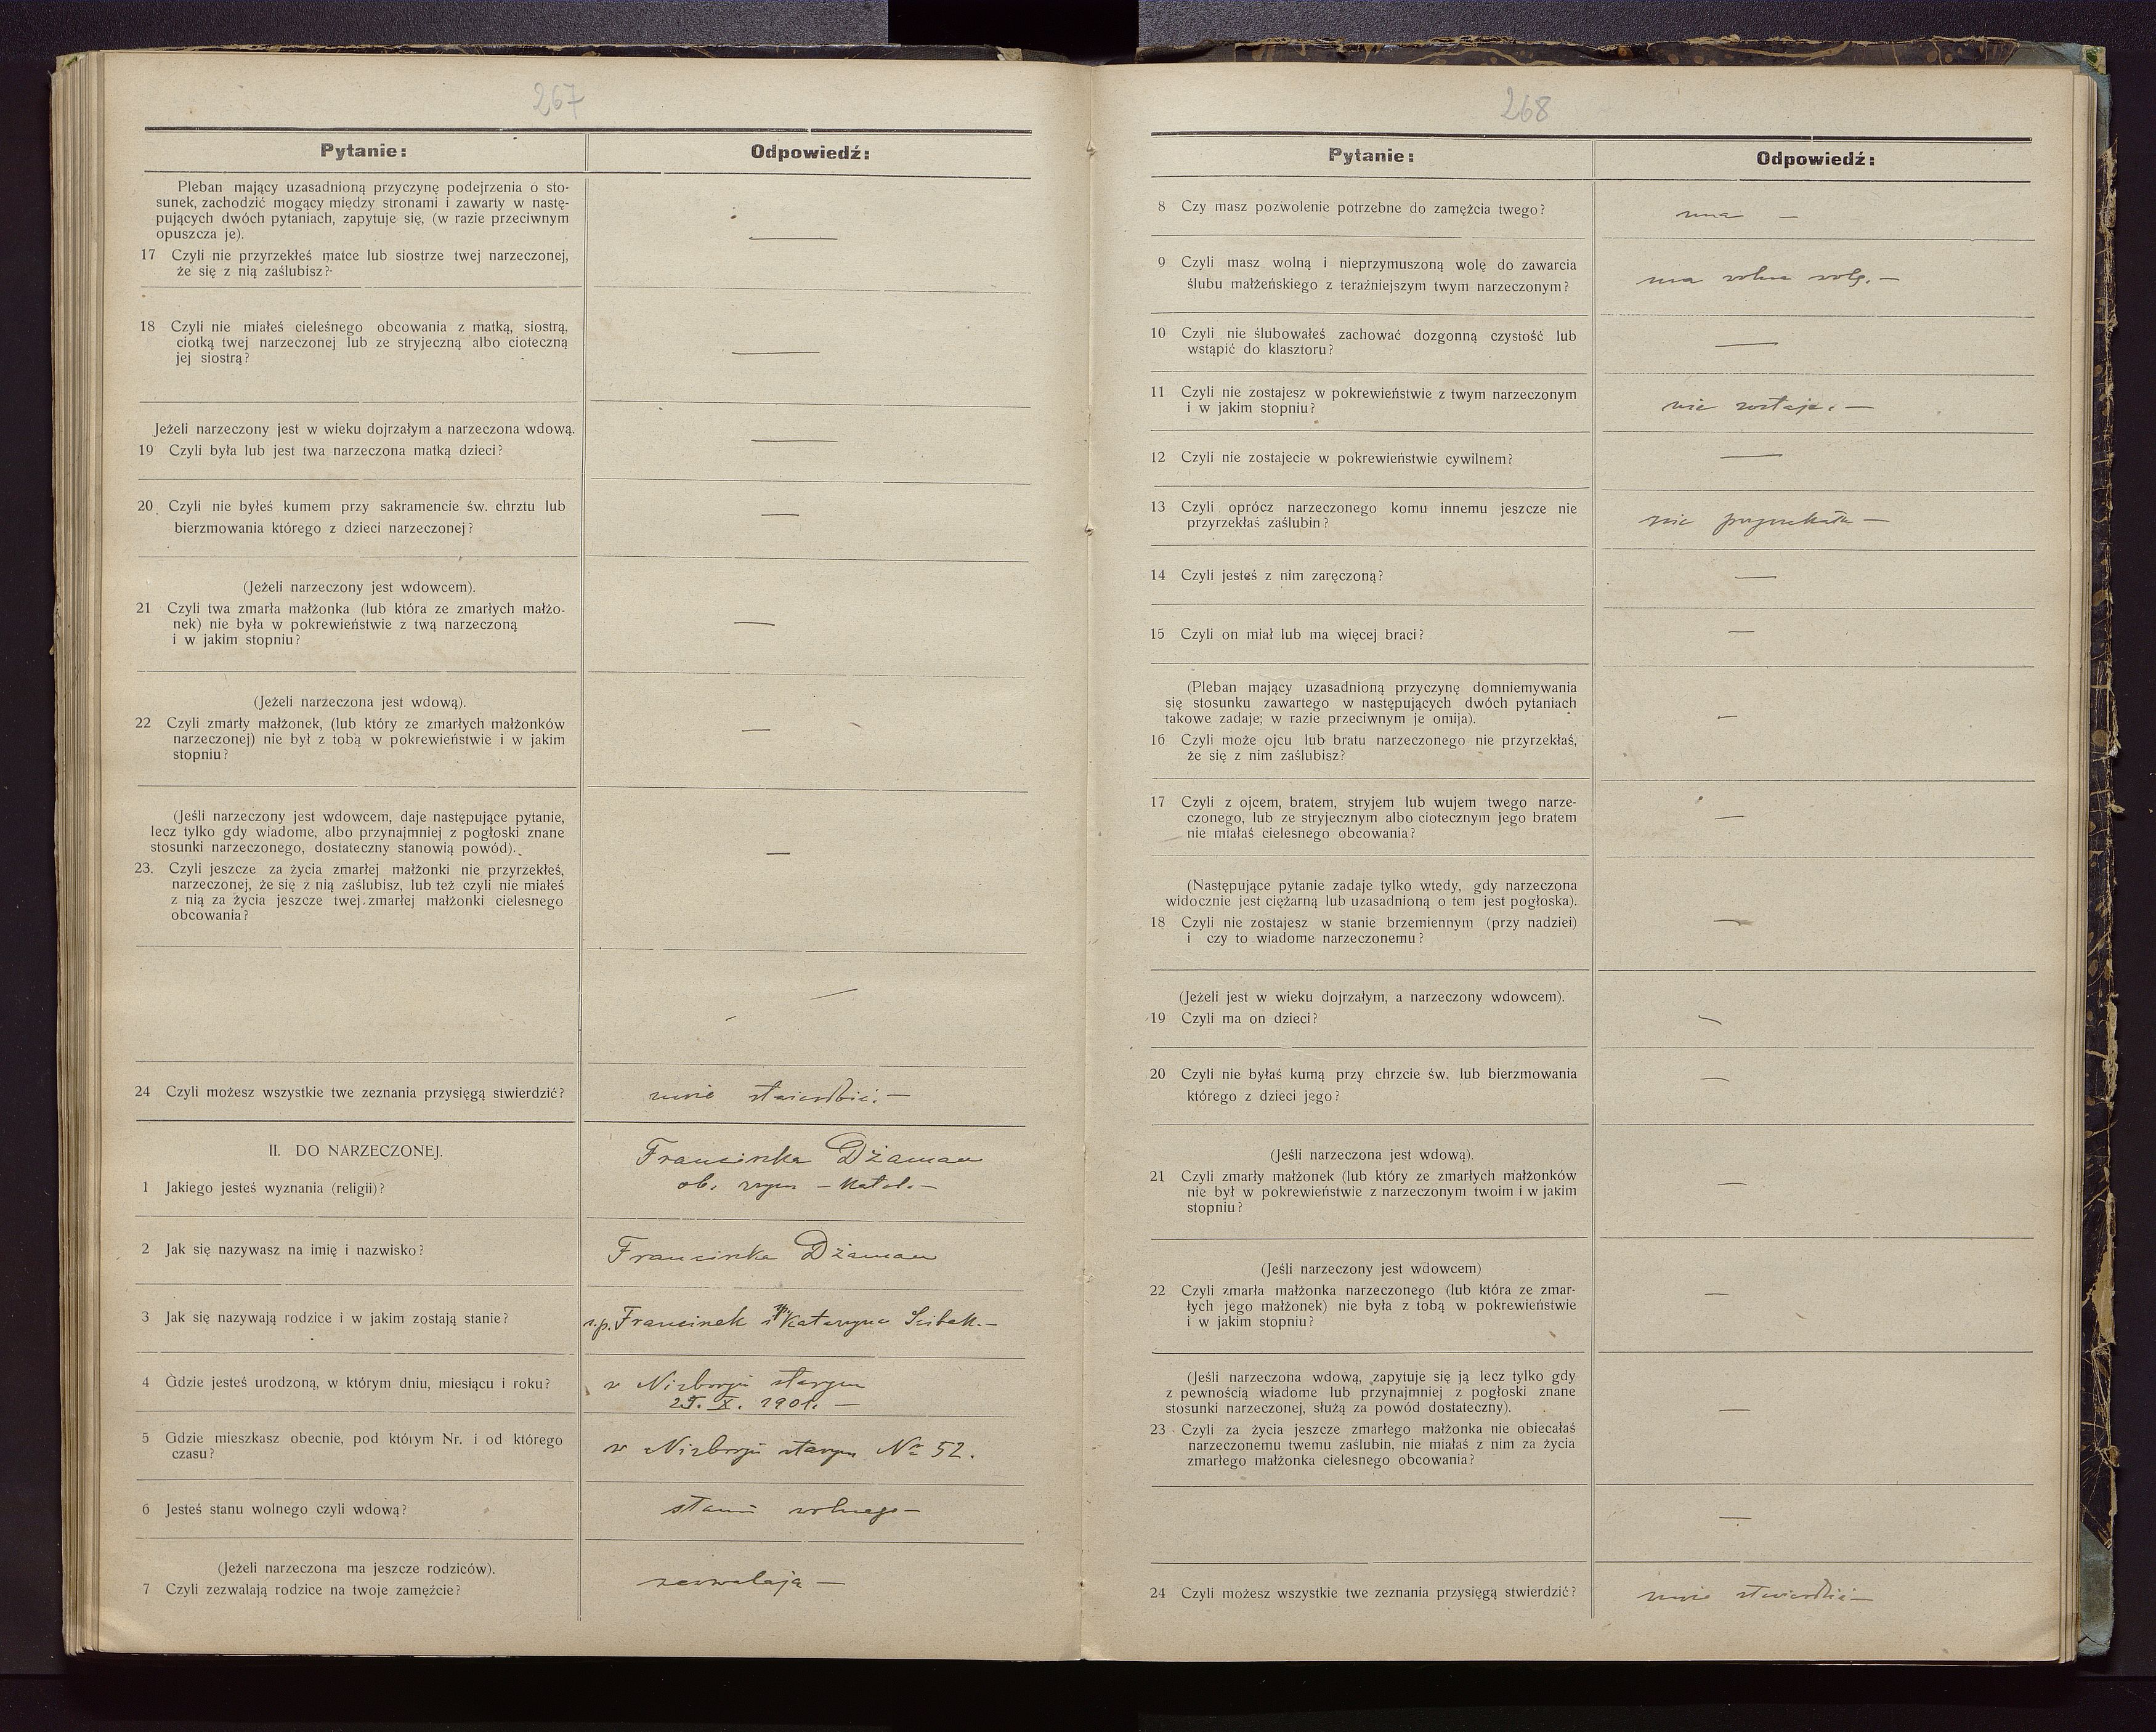 267
Pytanie:
Odpowiedź:
Pleban mający uzasadnioną przyczynę podejrzenia o sto-
sunek, zachodzić mogący między stronami i zawarty w nastę-
pujących dwóch pytaniach, zapytuje się, (w razie przeciwnym
opuszcza je).
17 Czyli nie przyrzekłeś matce lub siostrze twej narzeczonej,
że się z nią zaślubisz?
—
18 Czyli nie miałeś cieleśnego obcowania z matką, siostrą,
ciotką twej narzeczonej lub ze stryjeczną albo cioteczną
jej siostrą?
—
Jeżeli narzeczony jest w wieku dojrzałym a narzeczona wdową.
19 Czyli była lub jest twa narzeczona matką dzieci?
—
20 Czyli nie byłeś kumem przy sakramencie św. chrztu lub
bierzmowania którego z dzieci narzeczonej?
—
(Jeżeli narzeczony jest wdowcem).
21 Czyli twa zmarła małżonka (lub która ze zmarłych małżo-
nek) nie była w pokrewieństwie z twą narzeczoną
i w jakim stopniu?
—
(Jeżeli narzeczona jest wdową).
22 Czyli zmarły małżonek, (lub który ze zmarłych małżonków
narzeczonej) nie był z tobą w pokrewieństwie i w jakim
stopniu?
—
(Jeśli narzeczony jest wdowcem, daje następujące pytanie,
lecz tylko gdy wiadome, albo przynajmniej z pogłoski znane
stosunki narzeczonego, dostateczny stanowią powód).
23. Czyli jeszcze za życia zmarłej małżonki nie przyrzekłeś,
narzeczonej, że się z nią zaślubisz, lub też czyli nie miałeś
z nią za życia jeszcze twej zmarłej małżonki cielesnego
obcowania?
—
—
24 Czyli możesz wszystkie twe zeznania przysięgą stwierdzić?
II. DO NARZECZONEJ.
Franciszka Dżaman
1 Jakiego jesteś wyznania (religii)?
ob. rzym – katol. –
2 Jak się nazywasz na imię i nazwisko?
Franciszka Dżaman
3 Jak się nazywają rodzice i w jakim zostają stanie?
ś.p. Franciszek i Kataryna –
4 Gdzie jesteś urodzoną, w którym dniu, miesiącu i roku?
w Niżborgu starym
X. 1901. –
5 Gdzie mieszkasz obecnie, pod którym Nr. i od którego
czasu?
w Niżborgu starym Nr 52.
6 Jesteś stanu wolnego czyli wdową?
stanu wolnego –
(Jeżeli narzeczona ma jeszcze rodziców).
7 Czyli zezwalają rodzice na twoje zamęźcie?
zezwalają –
268
Pytanie:
Odpowiedź:
8 Czy masz pozwolenie potrzebne do zamężcia twego?
ma –
9 Czyli masz wolną i nieprzymuszoną wolę do zawarcia
ślubu małżeńskiego z teraźniejszym twym narzeczonym?
ma wolna wolę. –
10 Czyli nie ślubowałeś zachować dozgonną czystość lub
wstąpić do klasztoru?
—
11 Czyli nie zostajesz w pokrewieństwie z twym narzeczonym
i w jakim stopniu?
nie zostaje. –
12 Czyli nie zostajecie w pokrewieństwie cywilnem?
—
13 Czyli oprócz narzeczonego komu innemu jeszcze nie
przyrzekłaś zaślubin?
nie przyrzekała –
14 Czyli jesteś z nim zaręczoną?
—
15 Czyli on miał lub ma więcej braci?
—
(Pleban mający uzasadnioną przyczynę domniemywania
się stosunku zawartego w następujących dwóch pytaniach
takowe zadaje; w razie przeciwnym je omija).
16 Czyli może ojcu lub bratu narzeczonego nie przyrzekłaś,
że się z nim zaślubisz?
—
17 Czyli z ojcem, bratem, stryjem lub wujem twego narze-
czonego, lub ze stryjecznym albo ciotecznym jego bratem
nie miałaś cielesnego obcowania?
—
(Następujące pytanie zadaje tylko wtedy, gdy narzeczona
widocznie jest ciężarną lub uzasadnioną o tem jest pogłoska).
18 Czyli nie zostajesz w stanie brzemiennym (przy nadziei)
i czy to wiadome narzeczonemu?
—
(Jeżeli jest w wieku dojrzałym, a narzeczony wdowcem).
19 Czyli ma on dzieci?
—
20 Czyli nie byłaś kumą przy chrzcie św. lub bierzmowania
którego z dzieci jego?
—
(Jeśli narzeczona jest wdową).
21 Czyli zmarły małżonek (lub który ze zmarłych małżonków
nie był w pokrewieństwie z narzeczonym twoim i w jakim
stopniu?
—
(Jeśli narzeczony jest wdowcem)
22 Czyli zmarła małżonka narzeczonego (lub która ze zmar-
łych jego małżonek) nie była z tobą w pokrewieństwie
i w jakim stopniu?
—
(Jeśli narzeczona wdową, zapytuje się ją lecz tylko gdy
z pewnością wiadome lub przynajmniej z pogłoski znane
stosunki narzeczonej, służą za powód dostateczny).
23 Czyli za życia jeszcze zmarłego małżonka nie obiecałaś
narzeczonemu twemu zaślubin, nie miałaś z nim za życia
zmarłego małżonka cielesnego obcowania?
—
—
24 Czyli możesz wszystkie twe zeznania przysięgą stwierdzić?